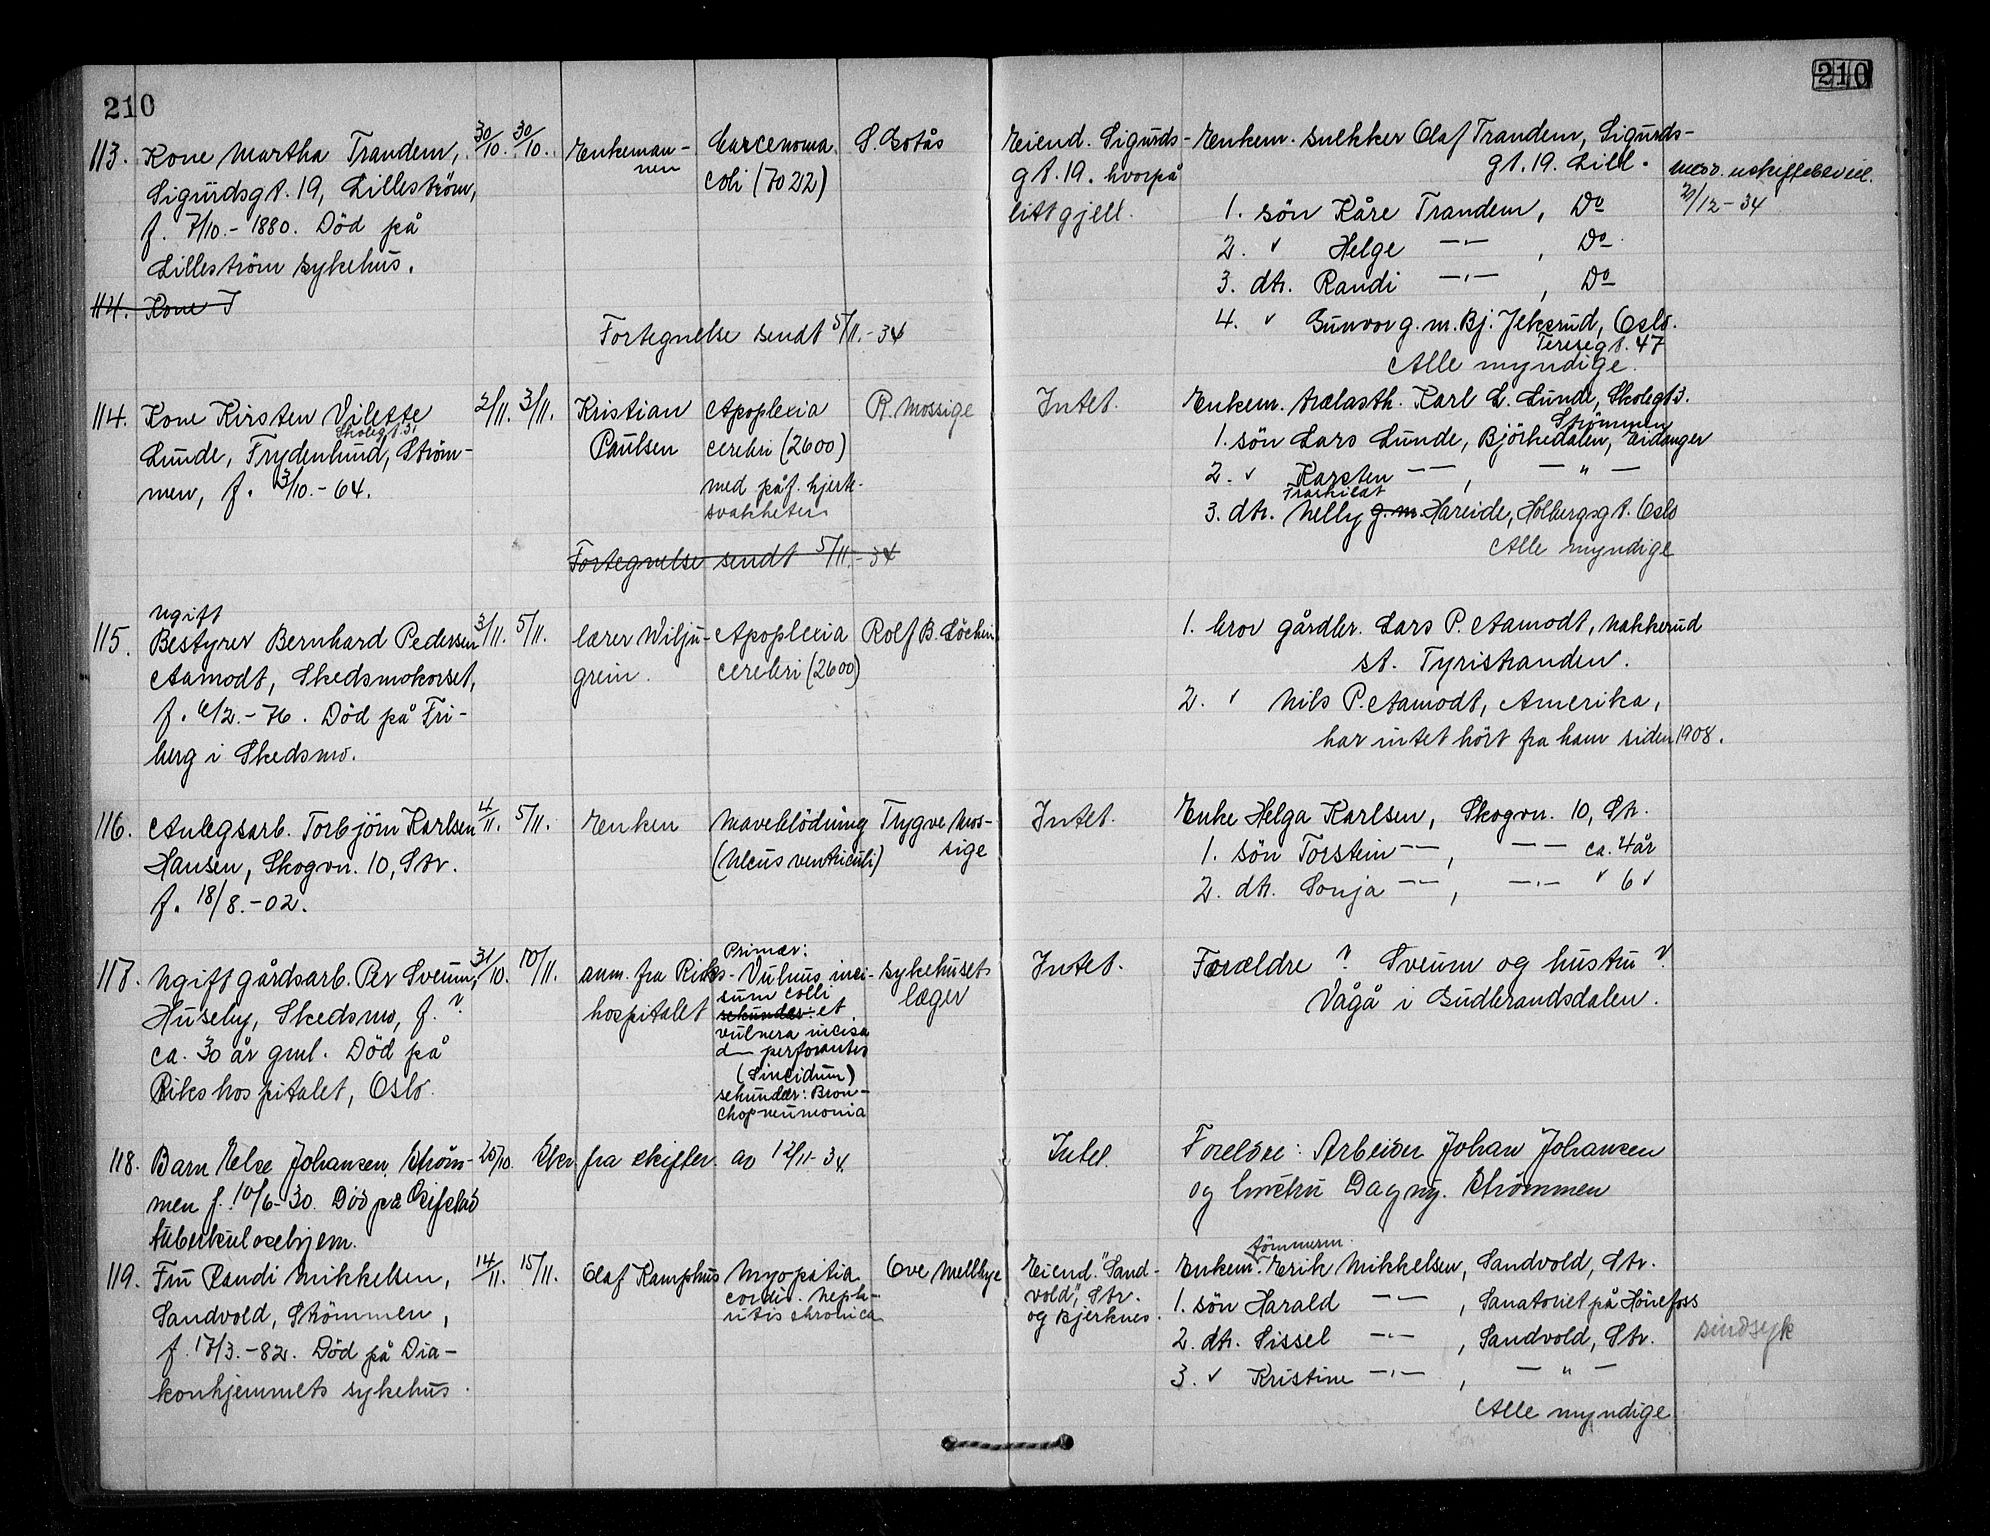 210
210
113. Kone Martha Trandem, 30/10. 30/10. Enkeman- Carcenoma S. Gotås Eiend. Sigurds- Enkem. snekker Olaf Trandem, Sigurds-
nen
Sigurdsgt. 19, Lilleström, coli (7022) gt. 19. hvorpå gt. 19. Lill.
f. 7/10.-1880. Död på litt gjell. 1. sön Kåre Trandem, Do
21/12-34
Lilleström sykehus. 2. " Helge -"- , Do
3. dtr. Randi -"- , Do
114. Kone T
4. " Gunvor g. m. Bj. Jelserud, Oslo.
Fortegnelse sendt 5/11.-34
Teresegt. 47
Alle myndige.
114. Kone Kirsten Vilette 2/11. 3/11. Kristian Apoplexia R. Mossige Intet. Enkem. trælasth. Karl L. Lunde, Skolegt 3.
Skolegt. 3.
Strømmen
Lunde, Frydenlund, Strøm- Paulsen cerebri (2600) 1. sön Lars Lunde, Björkedalen, Eidanger
men, f. 3/10.-64. med påf. hjerte- 2. " Karsten -"- , - " -
svakheter
3. dtr. Nelly g. m. Hareide, Holbergsgt. Oslo
Fortegnelse sendt 5/11.-34
Alle myndige
Ugift
115. Bestyrer Bernhard Pedersen 3/11. 5/11. lærer Wilju- Apoplexia Rolf B. Löchen 1. bror gårdbr. Lars P. Aamodt, Nakkerud
Aamodt, Skedsmokorset, grein. cerebri (2600) st. Tyristranden.
f. 6/2.-76. Död på Fri- 2. " Nils P. Aamodt, Amerika,
berg i Skedsmo. har intet hört fra ham siden 1908.
116. Anlegsarb. Torbjörn Karlsen 4/11. 5/11. Enken Maveblödning Trygve Mos- Intet. Enke Helga Karlsen, Skogvn. 10, Str.
Hansen, Skogvn. 10, Str. (Ulcus ventriculi) sige 1. sön Torstein -"- , -"- ca. 4 år
f. 18/8.-02. 2. dtr. Sonja -"- , -"- " 6 "
117. Ugift gårdsarb. Per Sveum, 31/10. 10/11. anm. fra Riks- Primær: Vulnus inci- sykehusets Intet. Forældre ? Sveum og hustru ?
Huseby, Skedsmo, f. ? hospitalet sum colli læger Vågå i Gudbrandsdalen.
sekundær: et
vulnera incisa
ca. 30 år gml. Död på perforantes
Rikshospitalet, Oslo.
sekundær: Bron-
chopneumonia
118. Barn Else Johansen, Strøm- 25/10. Skr. fra skifter. av 12/11-34 Intet. Foreldre: Arbeider Johan Johansen
men f. 10/6-30. Død på Geifstad og hustru Dagny. Strømmen
tuberkulosehjem.
tömmerm.
119. Fru Randi Mikkelsen, 14/11. 15/11. Olaf Kamphus Myopatia Ove Mellbye Eiend. "Sand- Enkem. Erik Mikkelsen, Sandvold, Str.
Sandvold, Strömmen, cordis. Neph- vold", Str. 1. sön Harald -"- , Sanatoriet på Hönefoss
ritis chronica og Bjerknes.
f. 17/3.-82. Död på Dia- 2. dtr. Sissel -"- , Sandvold, Str. sindssyk
konhjemmets sykehus. 3. " Kristine -"- , - " -
Alle myndige